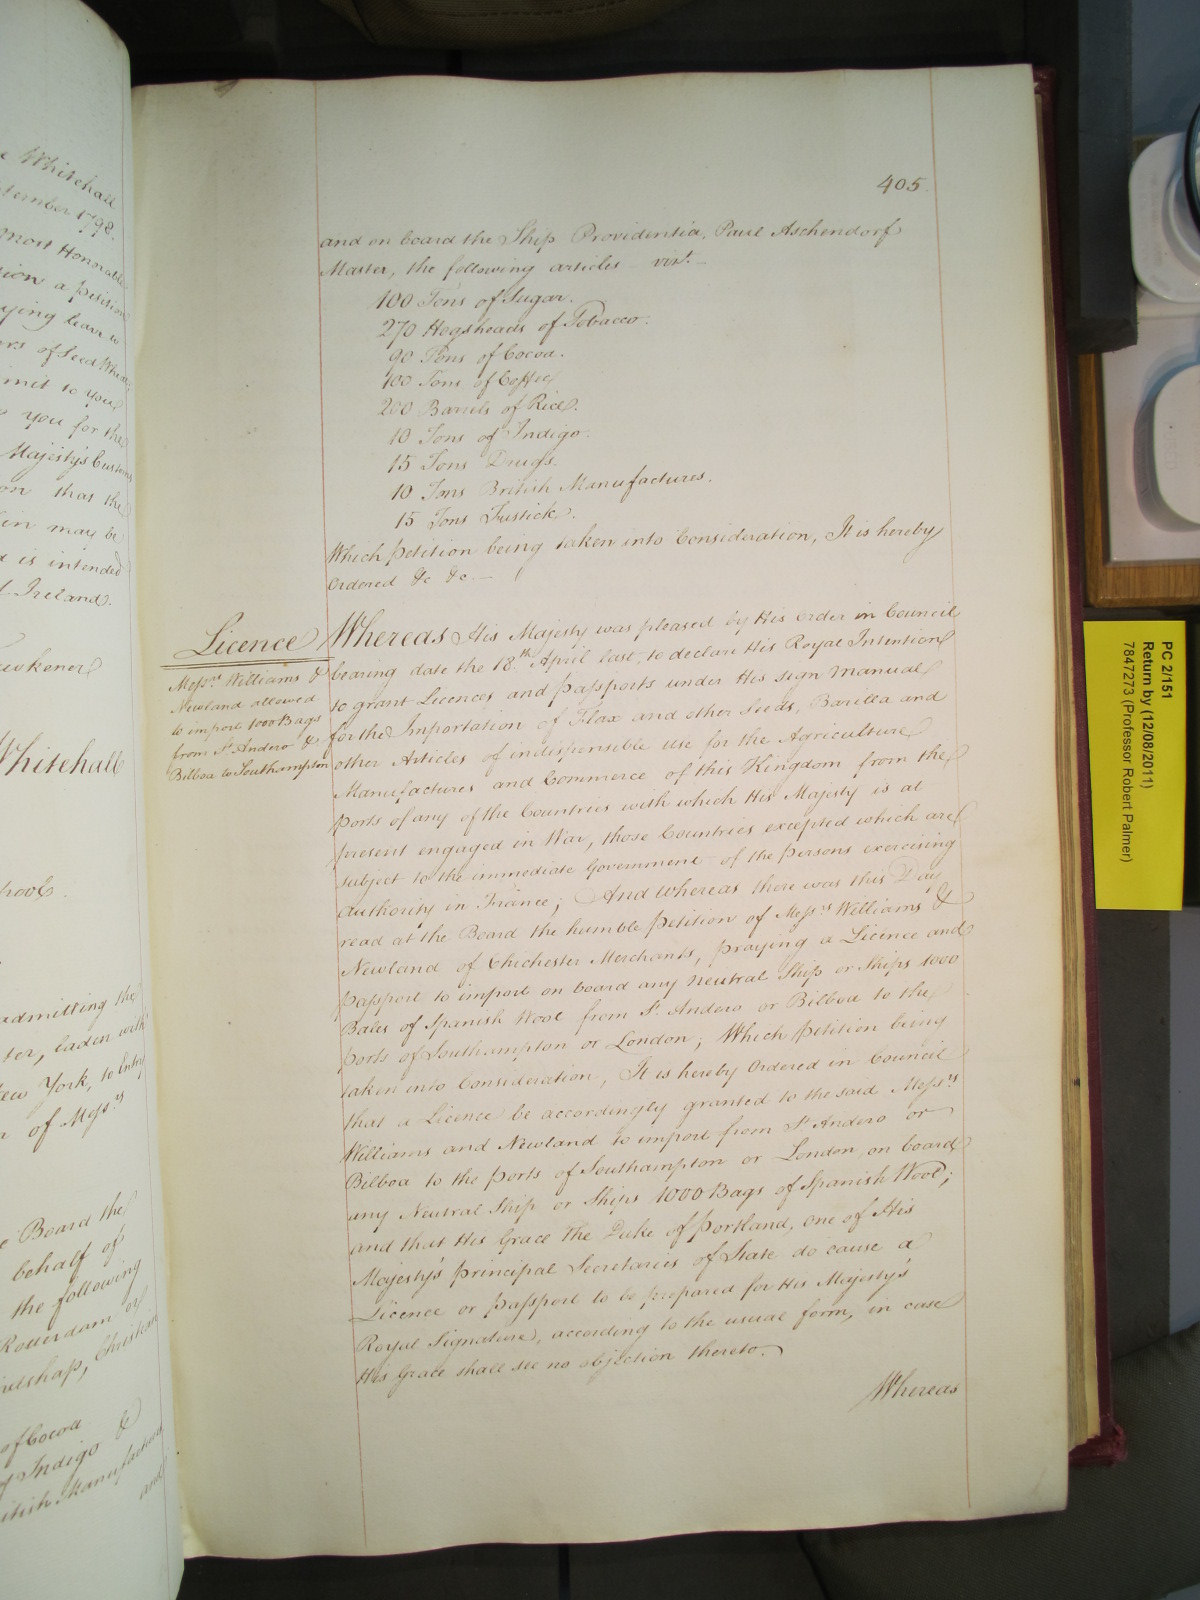 e Whitehall
tember 1798.
Most Honorable
tion a petition
ying leave to
ors of Seed Wheat
mit to you
you for the
Majesty's Customs
on that the
in may be
d is intended
Ireland.
awkener
Whitehall
admitting the
ter, laden with
ew York, to Entry
n of Mess.rs
e Board the
behalf of
the following
Rotterdam or
Christian
of Cocoa
of Indigo &
itish Manufactures
and
405
and on board the Ship Providentia, Paul Aschendorf
Master, the following articles - vizt. -
100 Tons of Sugar.
270 Hogsheads of Tobacco.
90 Tons of Cocoa.
100 Tons of Coffee
200 Barrels of Rice.
10 Tons of Indigo.
15 Tons Drugs.
10 Tons British Manufactures.
15 Tons Fustick.
Which petition being taken into Consideration, It is hereby
Ordered &c &c. -
Licence
Mess.rs Williams &
Newland allowed
to import 1000 Bags
from St Andero &
Bilboa to Southampton
Whereas His Majesty was pleased by His Order in Council
bearing date the 18.th April last, to declare His Royal Intention
to grant Licences and passports under His sign Manual
for the Importation of Flax and other Seeds, Barilla and
other Articles of indispensible use for the Agriculture
Manufactures and Commerce of this Kingdom from the
ports of any of the Countries with which His Majesty is at
present engaged in War, those Countries excepted which are
subject to the immediate Government of the persons exercising
authority in France; And whereas there was this Day
read at the Board the humble petition of Mess.rs Williams &
Newland of Chichester Merchants, praying a Licence and
passport to import on board any neutral Ship or Ships 1000
Bales of Spanish Wool from St Andero or Bilboa to the
ports of Southampton or London; Which petition being
taken into Consideration, It is hereby Ordered in Council
that a Licence be accordingly granted to the said Mess.rs
Williams and Newland to import from St Andero or
Bilboa to the ports of Southampton or London, on board
any Neutral Ship or Ships 1000 Bags of Spanish Wool;
and that His Grace the Duke of Portland, one of His
Majesty's principal Secretaries of State do cause a
Licence or passport to be prepared for His Majesty's
Royal Signature, according to the usual form, in case
His Grace shall see no objection thereto.
Whereas
PC 2/151
Return by (12/08/2011)
7847273 (Professor Robert Palmer)